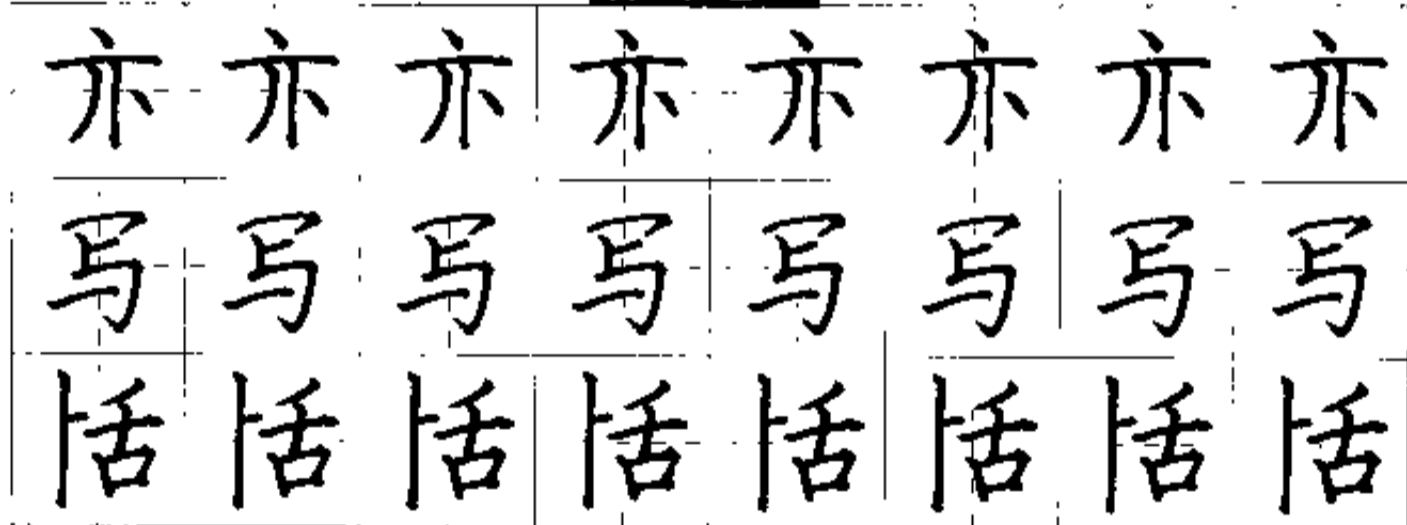 亦亦亦亦亦亦亦亦
写写写写写写写写
恬恬恬恬恬恬恬恬